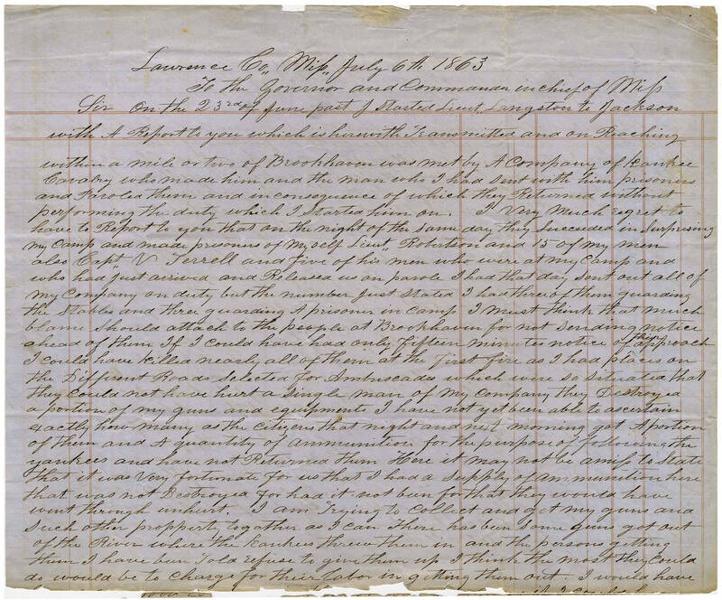 Lawrence Co,, Miss,, July 6th 1863
To the Governor and Commander in chief of Miss
Sir On the 23rd of June past I Started Lieut, Langston to Jackson
with A Report to you which is herewith Transmitted and on Reaching
within a mile or two of Brookhaven was met by A Company of Yankee
Cavalry who made him and the man who I had sent with him prisoners
and Paroled them and in consequence of which they Returned without
performing the duty which I Started him on. I Very Much regret to
have to Report to you that on the night of the same day they Succeded in Surprising
my Camp and made prisoners of My self Lieut, Robertson and 15 of my men
also Capt,, V Terrell and five of his men who were at my Camp and
who had just arrived and Released us on parole I had that day sent out all of
my Company on duty but the number Just Stated I had three of them guarding
the Stables and three guarding A prisoner in camp I must think that much
blame Should attach to the people at Brookhaven for not sending notice
ahead of them If I could have had only fifteen minutes notice of their approach
I could have killed nearly all of them at the first fire as I had places on
the Different Roads Selected for Ambuscades which were so situated that
they could not have hurt a Single man of My Company they Destroyed
a portion of my guns and equipments I have not yet been able to ascertain
exactly how many as the citizens that night and next morning got A portion
of them and A quantity of ammunition for the purpose of following the
yankees and have not Returned them Here it may not be amiss to State
that it was Very fortunate for us that I had a Supply of ammunition here
that was not Destroyed for had it not bun for that they would have
went through unhurt. I am Trying to collect and get my guns and
Such other propperty together as I can There has bun Some guns got out
of the River where the Yankees threw them in and the persons getting
them I have bun Told refuse to give them up I think the most they Could
do would be to Charge for their Labor in getting them out. I would have